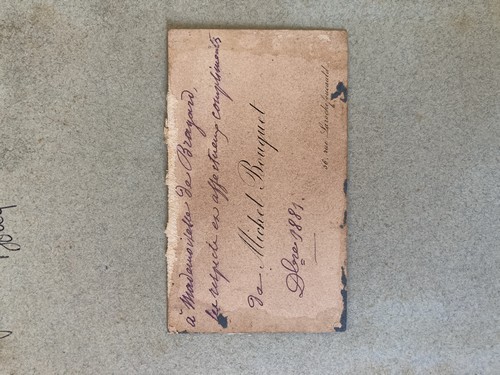 à Mademoiselle de Brayard,
les respects et affectueux compliments
de Michel Bouquet
Dbre 1881.
rue